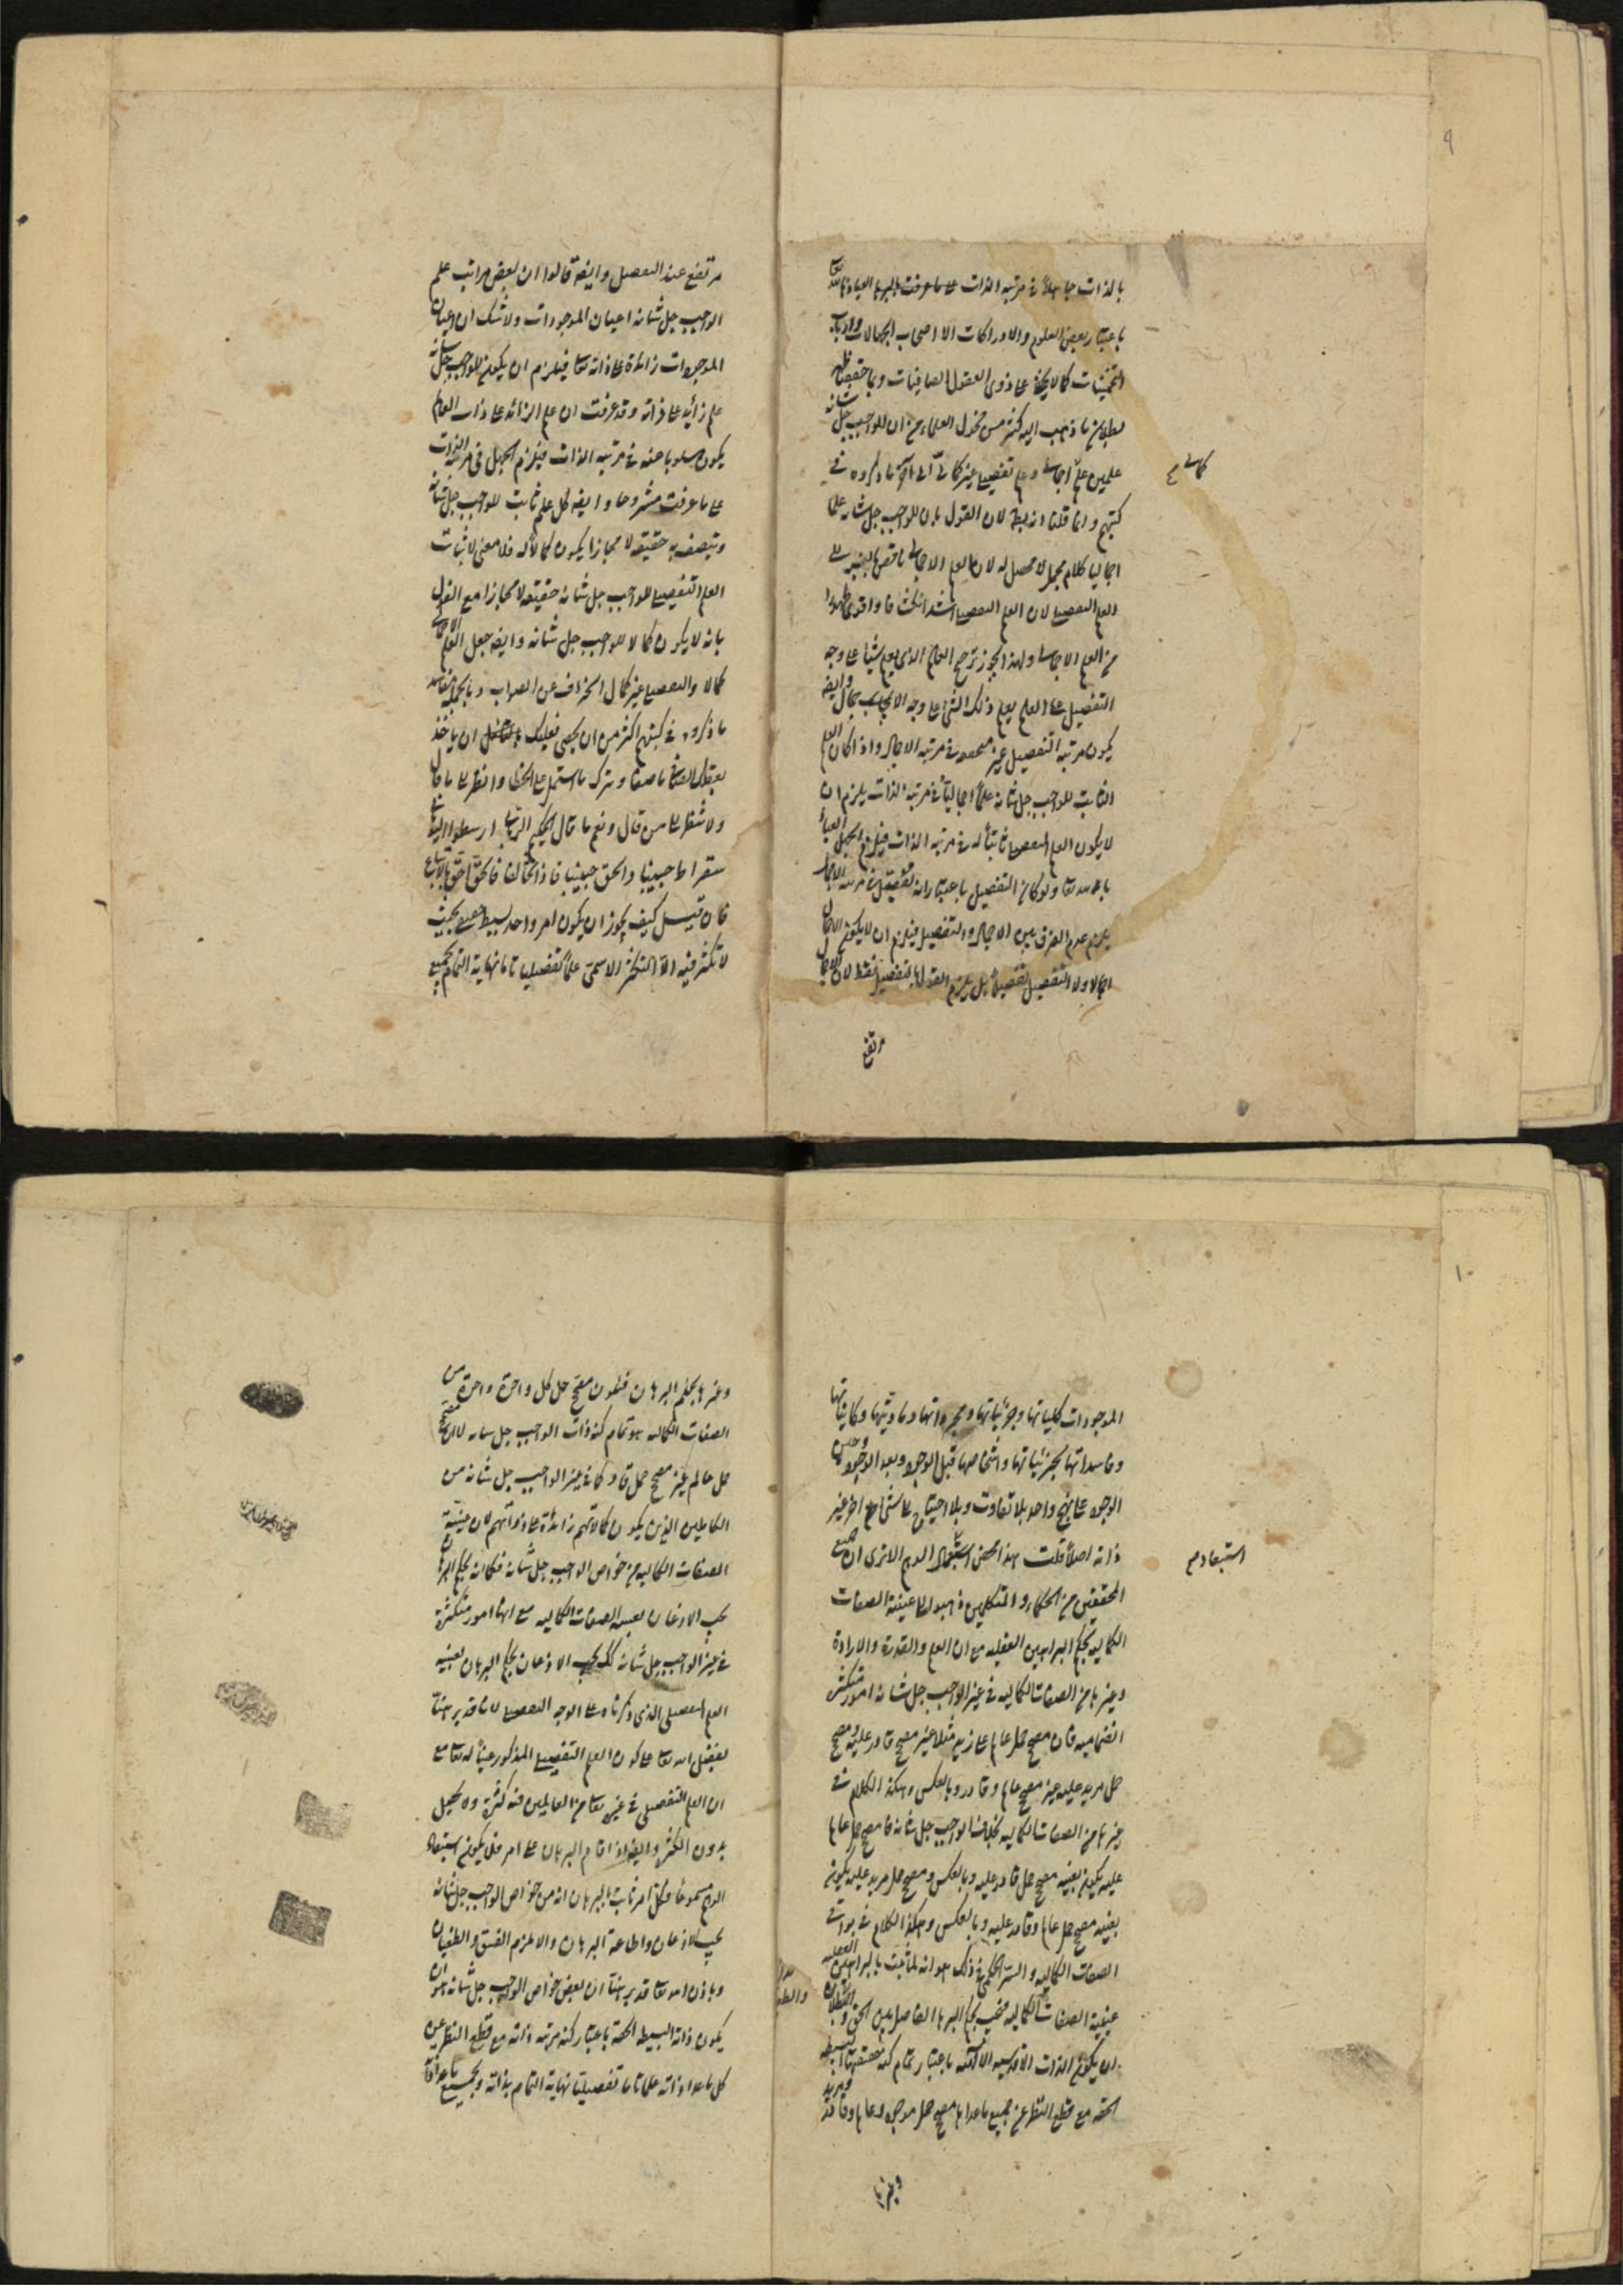 ٩
بالذات جاهلاً في مرتبة الذات على ما عرفت بالبرهان العياذ بالله تعالى
باعتبار بعض العلوم والادراكات الا اصحاب الجهالات وارباب
التخمينات كما لا يخفى على ذوي العقول الصافيات وبما حققنا ظهر
بطلان ما ذهب اليه كثير من فحول العلماء من ان للواجب جل شانه
علمين علم اجمالي وعلم تفصيلي غير كمالي الى آخر ما ذكروه في
كمالي
كتبهم وانما قلنا انه يبطل لان القول بان للواجب جل شانه علما
اجماليا كلام مجمل لا محصل له لان العلم الاجمالي ناقص بالنسبة الى
العلم التفصيلي لان العلم التفصيلي اشد انكشافا واقوى ظهورا
من العلم الاجمالي ولهذا يجوز ترجيح العالم الذي يعلم شيئا على وجه
التفصيل على العالم يعلم ذلك الشيء على وجه الاجمال وايضا
يكون مرتبة التفصيل غير في مرتبة الاجمال واذا كان العلم
الثابت للواجب جل شانه علماً اجمالياً في مرتبة الذات يلزم ان
لا يكون العلم التفصيلي ثابتاً له في مرتبة الذات فيلزم الجهل العياذ
بالله تعالى ولو كان التفصيل باعتبار انه تفصيل في مرتبة الاجمال
يلزم عدم الفرق بين الاجمال والتفصيل فيلزم ان لا يكون الاجمال
اجمالا ولا التفصيل تفصيلا بل يلزم القول بالتفصيل فقط لان الاجمال
مرتفع
مرتفع عند التفصيل وايضا قالوا ان بعض مراتب علم
الواجب جل شانه اعيان الموجودات ولا شك ان اعيان
الموجودات زائدة على ذاته تعالى فيلزم ان يكون للواجب جل شانه
علم زايد على ذاته وقد عرفت ان علم الزائد على ذات العالم
يكون مسلوبا عنه في مرتبة الذات فيلزم الجهل في مرتبة الذات
على ما عرفت مشروحا وايضا كل علم ثابت للواجب جل شانه
ويتصف به حقيقة لا مجازا يكون كمالا له فلا معنى لاثبات
العلم التفصيلي للواجب جل شانه حقيقة لا مجازا مع القول
بانه لا يكون كمالا للواجب جل شانه وايضا جعل العلم الاجمالي
كمالا والتفصيلي غير كمال انحراف عن الصواب وبالجملة مفاسد
ما ذكروه في كتبهم اكثر من ان يحصى فعليك ان ياخذ
بعقلك الصافي ما صفا وترك ما اشتمل على الخطا وانظر الى ما قال
ولا تنظر الى من قال ونعم ما قال الحكيم الرباني ارسطوا
سقراط حبيبنا والحق حبيبنا فاذا تخالفا فالحق احق بالاتباع
فان قيل كيف يجوز ان يكون امر واحد بسيط بحيث
لا تكثر فيه الا التكثر الاسمي علماً تفصيليا تاما نهاية التمام بجميع
١٠
الموجودات كلياتها وجزئياتها ومجرداتها ومادياتها وكايناتها
وفاسداتها بجزئياتها واشخاصها قبل الوجود وبعد الوجود وحين
الوجود على نهج واحد بلا تفاوت وبلا احتياج الى شيء آخر غير
ذاته اصلاً قلت هذا محض الوهم الا ترى ان جميع
استبعاد
المحققين من الحكماء والمتكلمين ذهبوا الى عينية الصفات
الكمالية بحكم البراهين العقلية مع ان العلم والقدرة والارادة
وغيرها من الصفات الكمالية في غير الواجب جل شانه امور متكثرة
انضمامية فان مصحح حمل عالم على زيد مثلا غير مصحح قادر عليه ومصحح
حمل مريد عليه غير مصحح عالم وقادر وبالعكس وهكذا الكلام في
غيرها من الصفات الكمالية بخلاف الواجب جل شانه فما مصحح حمل عالم
عليه يكون بعينه مصحح حمل قادر عليه وبالعكس ومصحح حمل مريد عليه يكون
بعينه مصحح حمل عالم وقادر عليه وبالعكس وهكذا الكلام في بواقي
الصفات الكمالية والسر الحكمي في ذلك هو انه لما ثبت بالبراهين العقلية
عينية الصفات الكمالية فيجب بحكم البرهان الفاصل بين الحق والبطلان
ان يكون الذات الاقدسية باعتبار تمام كنه حقيقتها البسيطة
الحقة مع قطع النظر عن جميع ما عداها مصحح حمل موجود وعالم وقادر ومريد
وغيرها
وغيرها بحكم البرهان فيكون مصحح حمل كل واحدة واحدة من
الصفات الكمالية هو تمام كنه ذات الواجب جل شانه لا ان مصحح
حمل عالم غير مصحح حمل قادر كما في غير الواجب جل شانه من
الكاملين الذين يكون كمالاتهم زائدة على ذواتهم لان عينية
الصفات الكمالية من خواص الواجب جل شانه فكما انه بحكم البرهان
يجب الاذعان بعينية الصفات الكمالية مع انها امور متكثرة
في غير الواجب جل شانه كذلك يجب الاذعان بحكم البرهان بعينية
العلم التفصيلي الذي ذكرناه على الوجه التفصيلي لانا قد برهنا
بفضل الله تعالى على كون العلم التفصيلي المذكور عيناً له تعالى مع
ان العلم التفصيلي في غيره تعالى من العالمين فيه كثرة ولا يحصل
بدون الكثرة وايضا اذا قام البرهان على امر فلا يكون استبعاد
الوهم مسموعا وكل امر ثابت بالبرهان انه من خواص الواجب جل شانه
يجب الاذعان واطاعة البرهان والا يلزم الفسق والطغيان
وباذن الله تعالى قد برهنا ان بعض خواص الواجب جل شانه هو ان
يكون ذاته البسيطة الحقة باعتبار كنه مرتبة ذاته مع قطع النظر عن
كل ما عدا ذاته علما تاما تفصيليا نهاية التمام بذاته وبجميع ما عدا ذاته